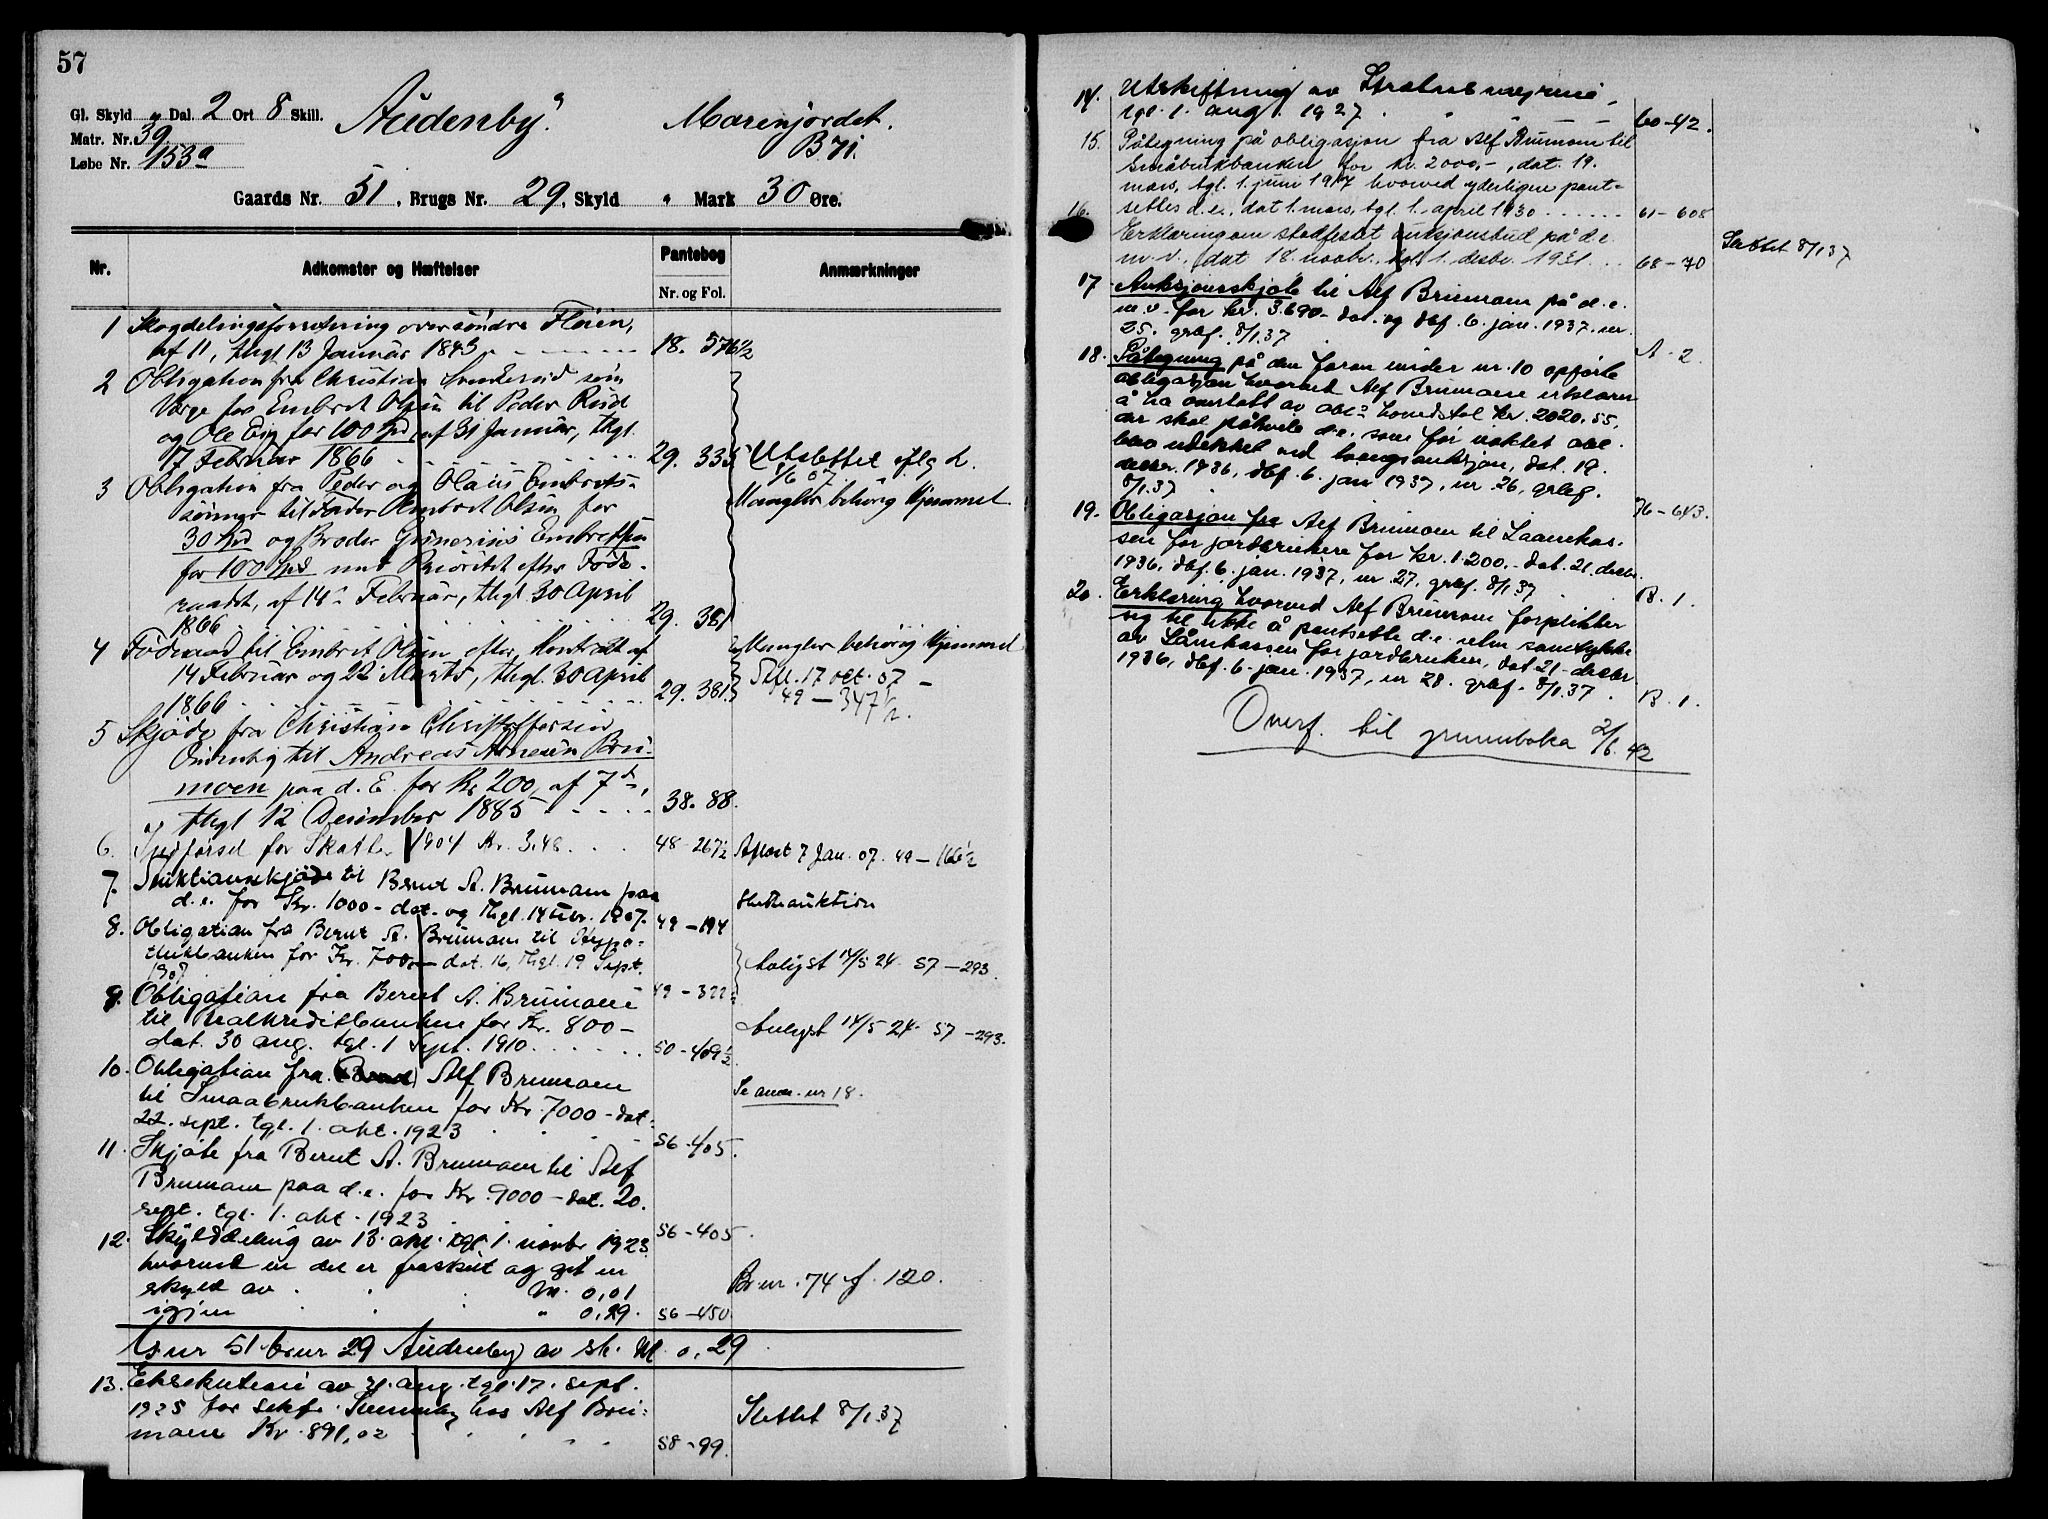 57
Gl. Skyld „ Dal. 2 Ort 8 Skill.
Matr. Nr. 39.
Løbe Nr. 153a
Audenby.
Marenjordet.
B 71.
Gaards Nr. 51, Brugs Nr. 29, Skyld „ Mark 30 Øre.
Nr. Adkomster og Hæftelser Pantebog Nr. og Fol. Anmærkninger
1 Skogdelingsforretning over søndre Floien,
af 11, thgl 13 Januar 1843. 18. 576½
2 Obligation fra Christian som
Værge for Embret Olsen til Peder Rud
og Ole Eig for 100 Spd af 31 Januar, thgl.
17 Februar 1866 29. 335 Utslettet iflg L.
3 Obligation fra Peder og Olaus Embrets- Mangler behørig Hjemmel
sønner til Fader Embret Olsen for
30 Spd og Broder Gunerius Embretsen
for 100 Spd med Prioritet efter Føde-
raadet, af 14de Februar, thgl. 30 April
1866 29. 381
4 Føderaad til Embret Olsen efter Kontrakt af Mangler behørig Hjemmel
14 Februar og 22 Marts, thgl. 30 April 17 oct. 07 –
1866 29. 381. 49 – 347½.
5 Skjøde fra Christian Christoffersen
til Andreas Arnesen Bru-
moen paa d. E. for Kr 200, af 7de,
thgl 12 December 1885 38. 88.
6. Indførsel for Skatter 1904 Kr. 3.48. 48 - 267½ Aflæst 7 Jan. 07. 49 – 166½
7. Auktionsskjøde til Bernt A. Brumoen paa
d. e. for Kr. 1000 – dat. og thgl. 14 1907. 49 – 194 auktion
8. Obligation fra Bernt A. Brumoen til Hypo-
thekbanken for Kr. 700,– dat. 16, thgl. 19 Sept. Avlyst 14/5 24. 57 – 293.
1907 49 – 322½
9. Obligation fra Bernt A. Brumoen
til Realkreditbanken for Kr. 800 – Avlyst 14/5 24. 57 – 293.
dat. 30 aug. tgl. 1 Sept. 1910. 50 - 409½
10. Obligation fra (Bernt) Alf Brumoen
til Smaabrukbanken for Kr. 7000 – dat. Se anm. nr 18.
22. sept. tgl. 1. okt. 1923 56 - 405.
11. Skjøte fra Bernt A. Brumoen til Alf
Brumoen paa d.e. for Kr. 9000 – dat. 20.
sept. tgl. 1. okt. 1923 56 – 405.
12. Skylddeling av 13. okt. tgl. 1. novbr 1923
hvorved en del er fraskilt og git en
skyld av M. 0,01 Br. nr. 74 f. 120.
igjen „ 0,29. 56 – 450
Gnr 51 brnr 29 Audenby av sk. M. 0,29
13. Eksekution av 21. aug. tgl. 17. sept.
1925 for hos Alf Bru- Slettet 8/1 37
moen Kr. 891,02 58 - 99.
14. Utskiftning av
tgl. 1. aug. 1927. 60 - 42.
15. Påtegning på obligasjon fra Alf Brumoen til
Småbrukbanken for kr. 2000,–, dat. 19.
mars, tgl. 1. juni 1917 hvorved yderligere pant-
settes d.e., dat 1. mars, tgl. 1. april 1930 61 – 608
16. Erklæring om stadfestet auksjonsbud på d.e. Slettet 8/1 37
m. v., dat 18. novbr., tgl. 1. desbr. 1931. 68 – 70
17 Auksjonsskjøte til Alf Brumoen på d. e.
m. v. for kr. 3.690 – dat. og dbf. 6. jan. 1937. nr.
25. grbf. 8/1 37 A - 2.
18. Påtegning på den foran under nr. 10 opførte
obligasjon hvorved Alf Brumoen erklærer
å ha overtatt av obl? hovedstol kr. 2020,55,
der skal påhvile d.e. som før uaktet obl.
blev udekket ved tvangsauksjon, dat. 19.
desbr. 1936, dbf. 6. jan 1937, nr 26, grbf.
8/1 37 76 – 643.
19. Obligasjon fra Alf Brumoen til Laanekas-
sen for jordbrukere for kr. 1200.– dat. 21. desbr.
1936, dbf. 6. jan. 1937, nr 27, grbf. 8/1 37 B. 1.
20. Erklæring hvorved Alf Brumoen forplikter
sig til ikke å pantsette d.e. uten samtykke
av Lånekassen for jordbrukere, dat 21. desbr
1936, dbf. 6. jan. 1937, nr 28. grbf. 8/1 37. B. 1.
Overf. til grunnboka 2/6. 42